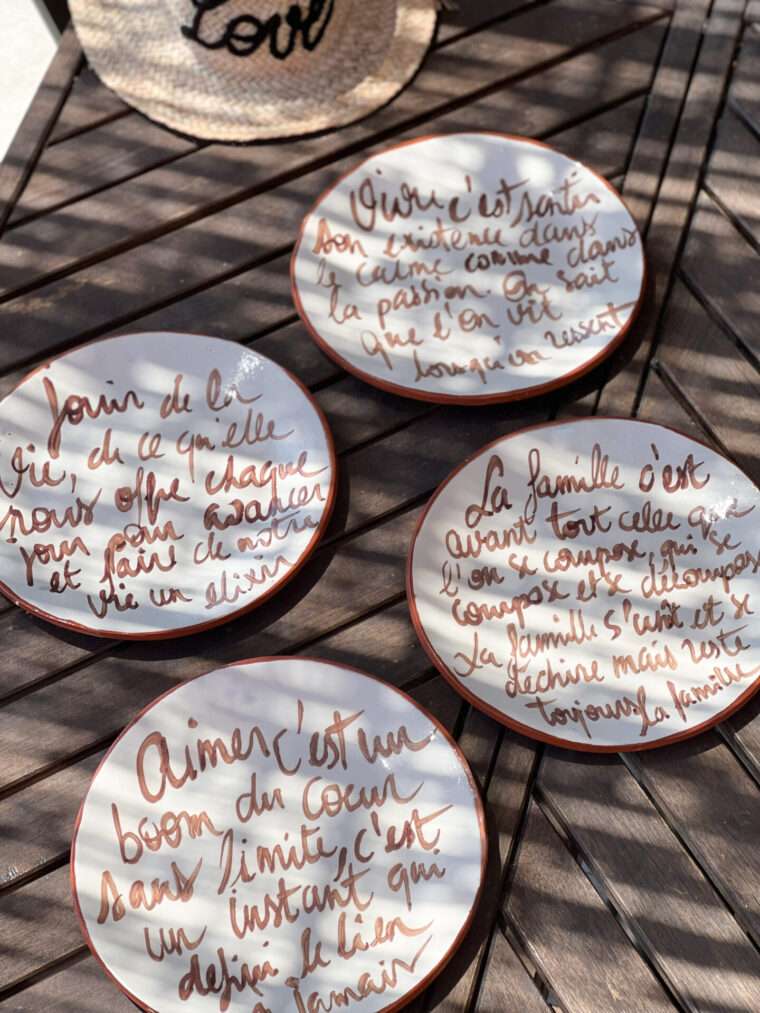 Love
Vivre c'est sentir
son existence dans
le calme comme dans
la passion. On sait
que l'on vit
lorsqu'on ressent
Jouir de la
vie, de ce qu'elle
nous offre chaque
jour pour avancer
et faire de notre
vie un elixir
La famille c'est
avant tout celle que
l'on se compose, qui se
compose et se décompose
La famille s'unit et se
déchire mais reste
toujours la famille
Aimer c'est un
boom du coeur
sans limite, c'est
un instant qui
defini le lien
à jamais